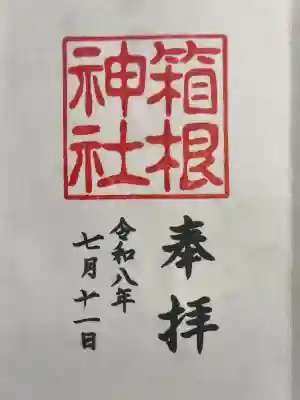 箱根
神社
奉拝
令和八年
七月十一日